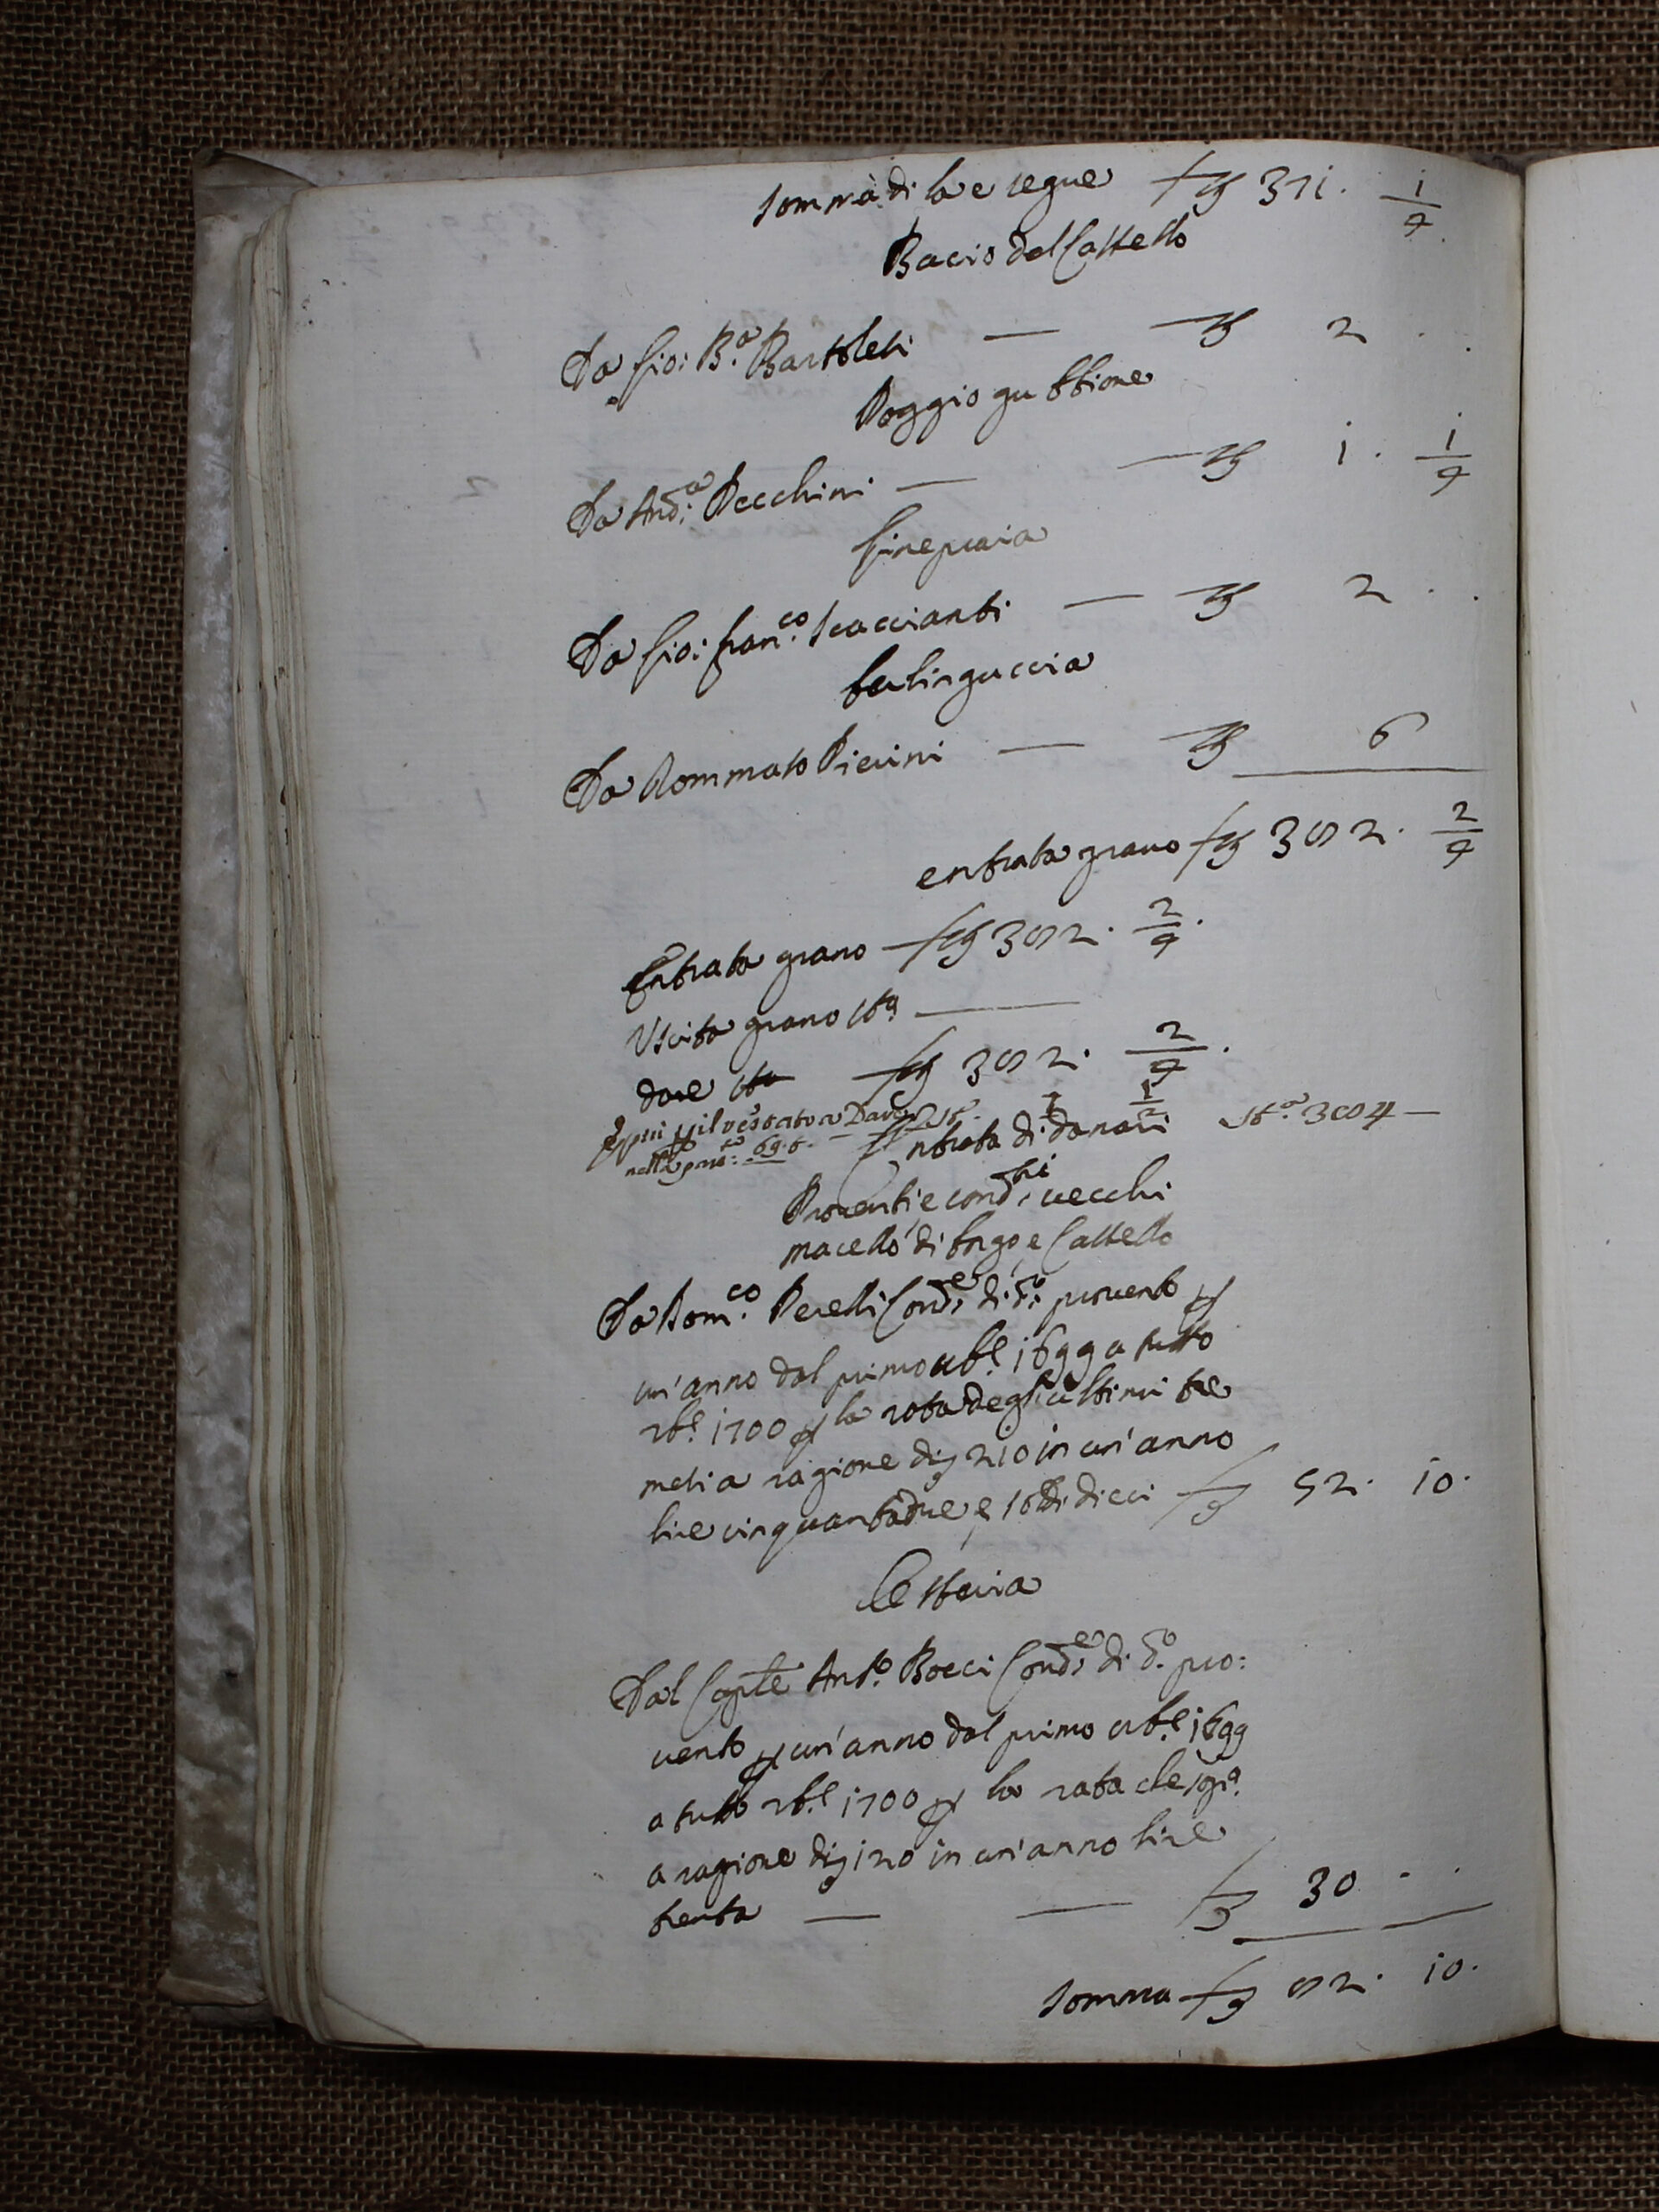 somma di la e segue st 371. 1/4
Bacio del Castello
Da Gio: B.a Bartoleti — st 2 . .
Poggio gubbione
Da And.a Pecchini — st 1 . 1/4
Ginepraia
Da Gio: Fran.co Scaccianti — st 2 . .
berlinguccia
Da Dommato Pierini — st 6
entrata grano st 382. 2/4
Entrata grano st 382. 2/4.
Uscita grano sta —
dare sta st 382. 2/4.
st.a 3004 —
nella 69.6. —
Entrata di danari
Proventi e cond.ri vecchi
macello di borgo e Castello
Da Dom.co Perelli Cond.e di d.o provento p
un'anno dal primo 9b.e 1699 a tutto
xb.e 1700 p la rata degl'ultimi tre
mesi a ragione di £ 210 in un'anno
lire cinquantadue e soldi dieci £ 52. 10.
Osteria
Dal Cap.te Ant.o Bocci Cond.e di d.o pro:
vento p un'anno dal primo 9b.e 1699
a tutto xb.e 1700 p la rata che sop.a
a ragione di £ 120 in un'anno lire
trenta — — £ 30 . .
somma £ 82. 10.